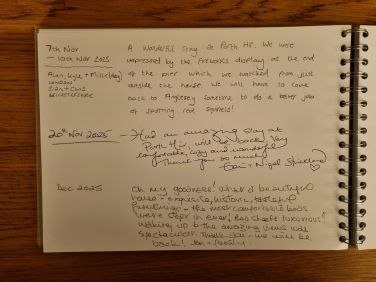 7th Nov
– 10th Nov 2025
Alan, Kyle + Milo (dog)
LONDON
SIAN + CHRIS
LEICESTERSHIRE
A wonderful stay at Porth Hir. We were
impressed by the fireworks display at the end
of the pier which we watched from just
outside the house. We will have to come
back to Anglesey sometime to do a better job
of spotting red squirrels!
20th Nov 2025 – Had an amazing stay at
Porth Hir, will be back! Very
comfortable, cosy and wonderful
Thank you so much
+ Nigel
Dec 2025
Oh my goodness! What a beautiful
house – exquisite, historic, tasteful
furnishings – the most comfortable beds
we've slept in ever! Bed sheets luxurious!
Waking up to the amazing views was
spectacular. Thank you – we will be
back! + family